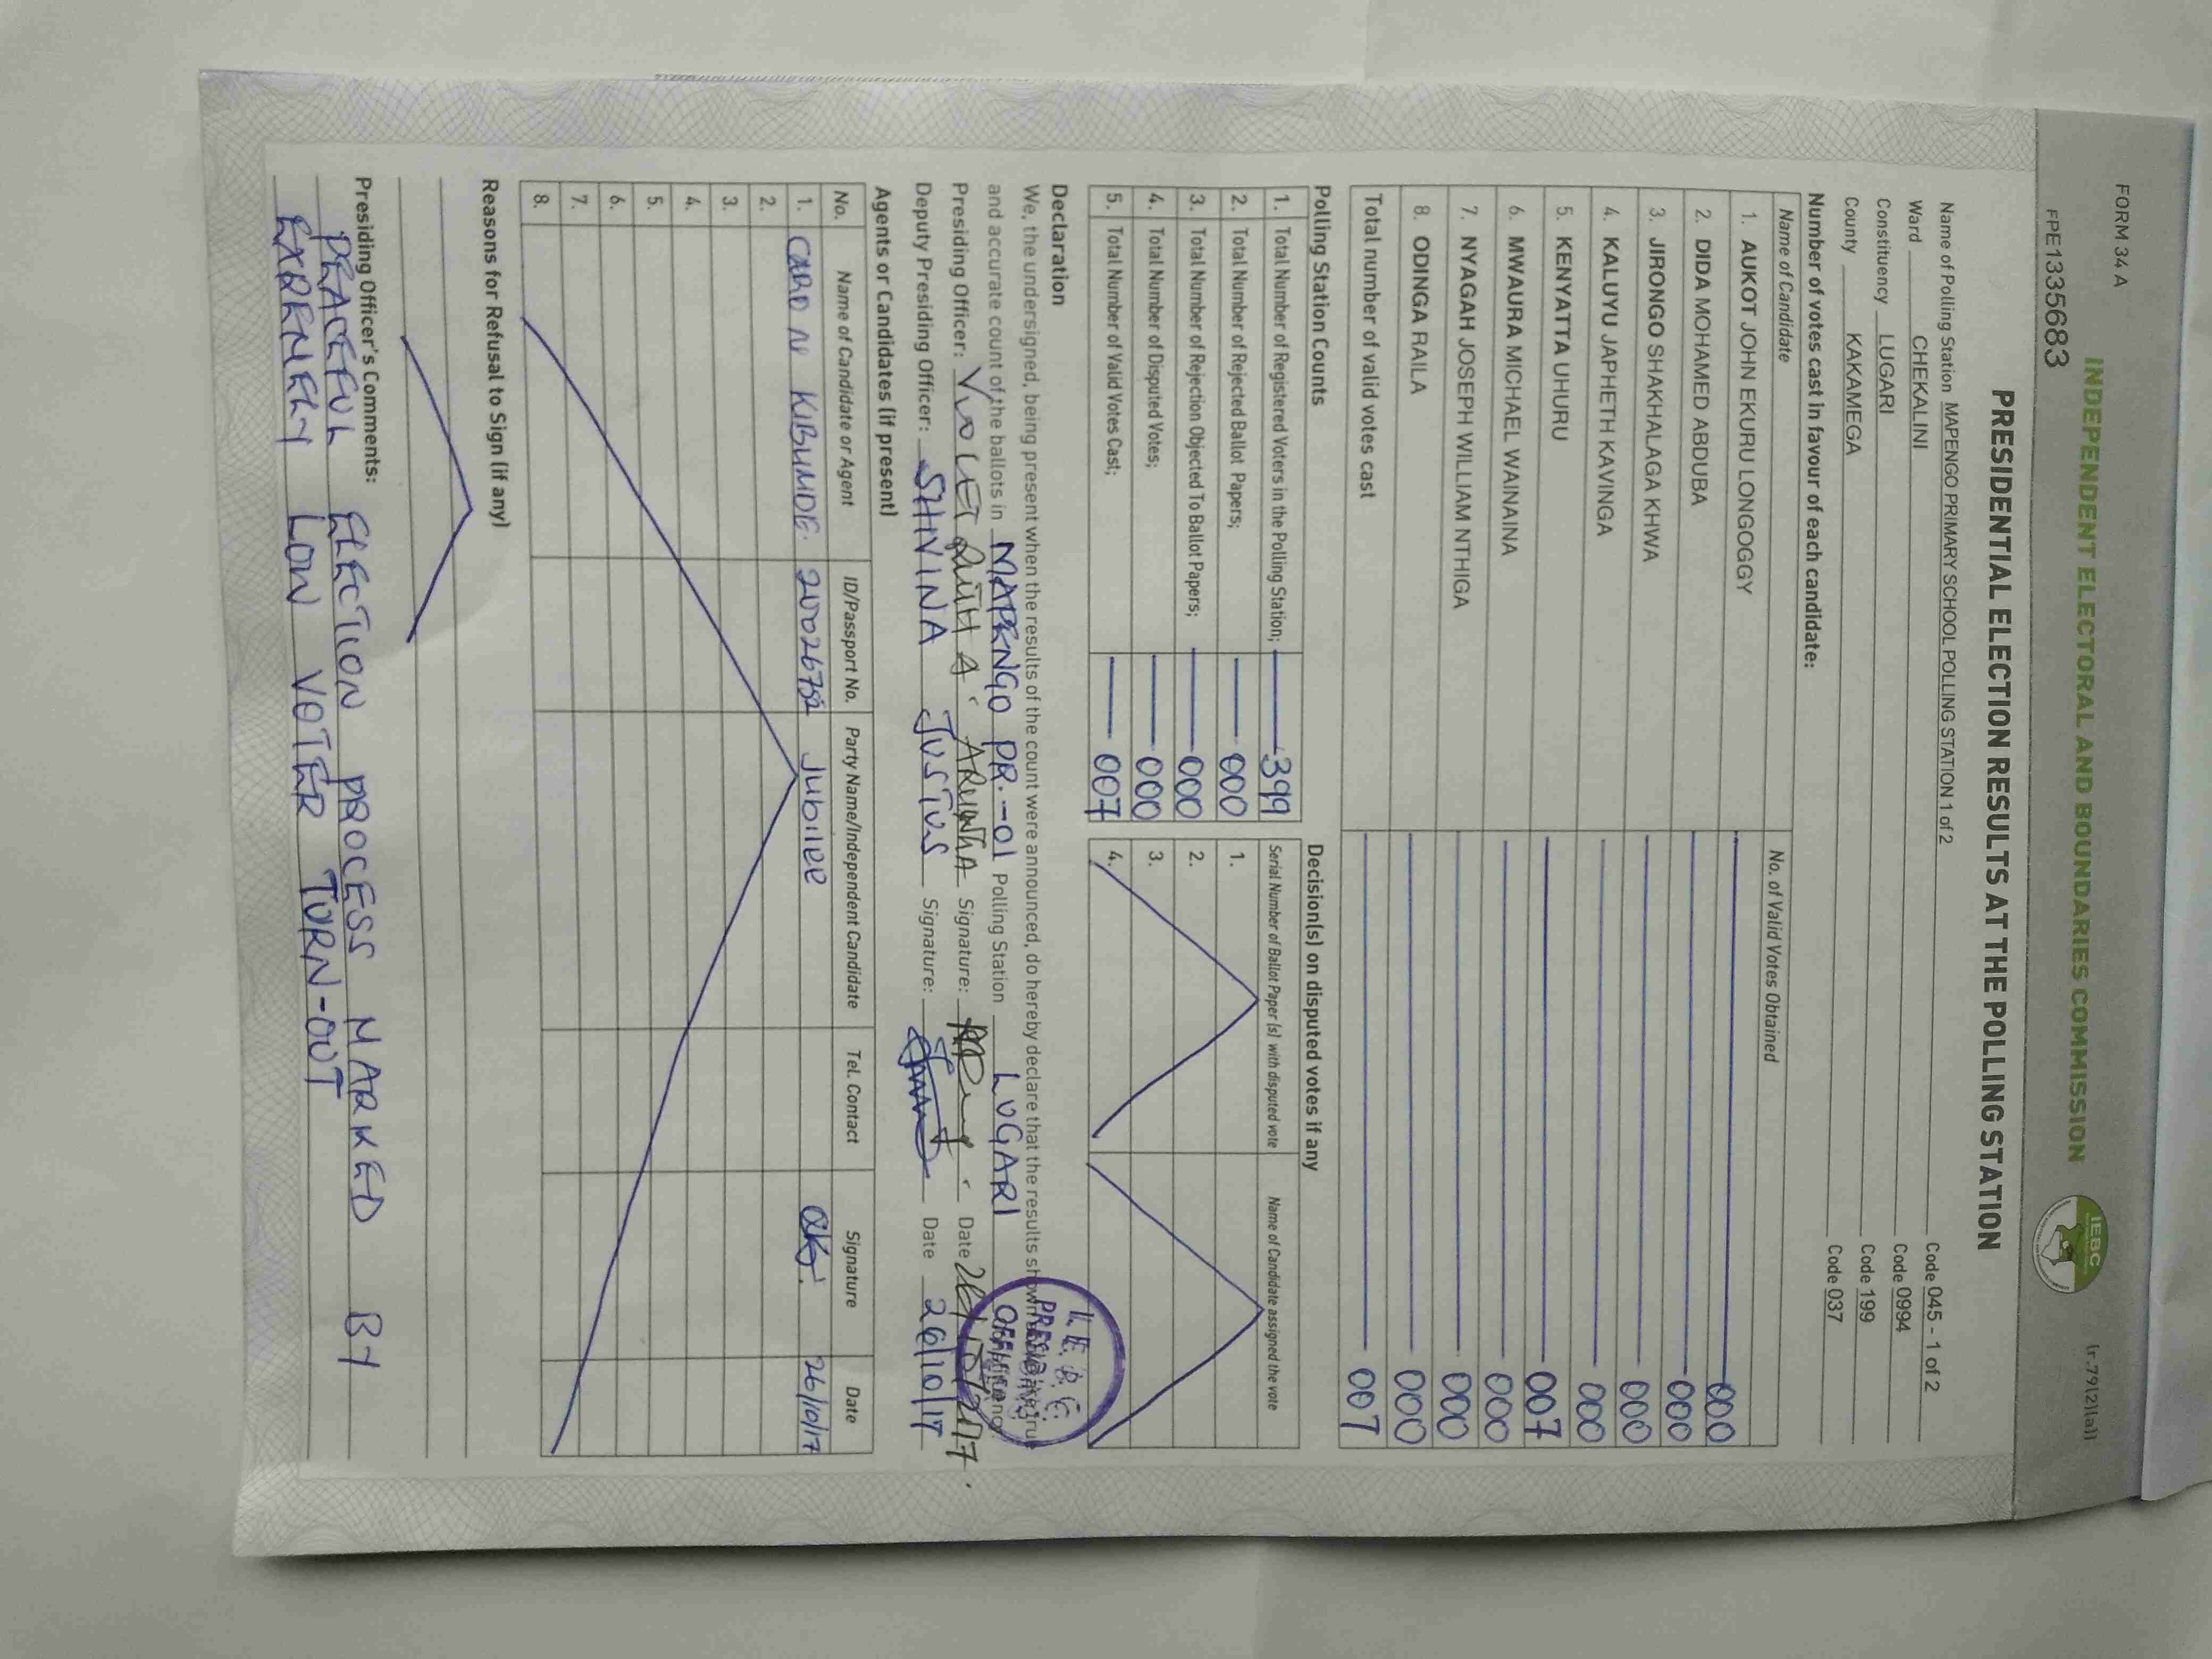 FORM 34 A
(r.79(2)(a))
INDEPENDENT ELECTORAL AND BOUNDARIES COMMISSION
IEBC
FPE1335683
PRESIDENTIAL ELECTION RESULTS AT THE POLLING STATION
Name of Polling Station MAPENGO PRIMARY SCHOOL POLLING STATION 1 of 2 Code 045 - 1 of 2
Ward CHEKALINI Code 0994
Constituency LUGARI Code 199
County KAKAMEGA Code 037
Number of votes cast in favour of each candidate:
Name of Candidate No. of Valid Votes Obtained
1. AUKOT JOHN EKURU LONGOGGY 000
2. DIDA MOHAMED ABDUBA 000
3. JIRONGO SHAKHALAGA KHWA 000
4. KALUYU JAPHETH KAVINGA 000
5. KENYATTA UHURU 007
6. MWAURA MICHAEL WAINAINA 000
7. NYAGAH JOSEPH WILLIAM NTHIGA 000
8. ODINGA RAILA 000
Total number of valid votes cast 007
Polling Station Counts Decision(s) on disputed votes if any
1. Total Number of Registered Voters in the Polling Station; 399
2. Total Number of Rejected Ballot Papers; 000
3. Total Number of Rejection Objected To Ballot Papers; 000
4. Total Number of Disputed Votes; 000
5. Total Number of Valid Votes Cast; 007
Serial Number of Ballot Paper (s) with disputed vote Name of Candidate assigned the vote
1.
2.
3.
4.
Declaration
We, the undersigned, being present when the results of the count were announced, do hereby declare that the results shown
and accurate count of the ballots in MAPENGO PR.-01 Polling Station LUGARI
I.E.B.C. PRESIDING OFFICER
Presiding Officer: VIOLET Signature: Date 26/10/2017.
Deputy Presiding Officer: SHVINA JUSTUS Signature: Date 26/10/17
Agents or Candidates (if present)
No. Name of Candidate or Agent ID/Passport No. Party Name/Independent Candidate Tel. Contact Signature Date
1. CARO N KIBUNDE. Jubilee 26/10/17
2.
3.
4.
5.
6.
7.
8.
Reasons for Refusal to Sign (if any)
Presiding Officer's Comments:
PEACEFUL ELECTION PROCESS MARKED BY
EXREMELY LOW VOTER TURN-OUT